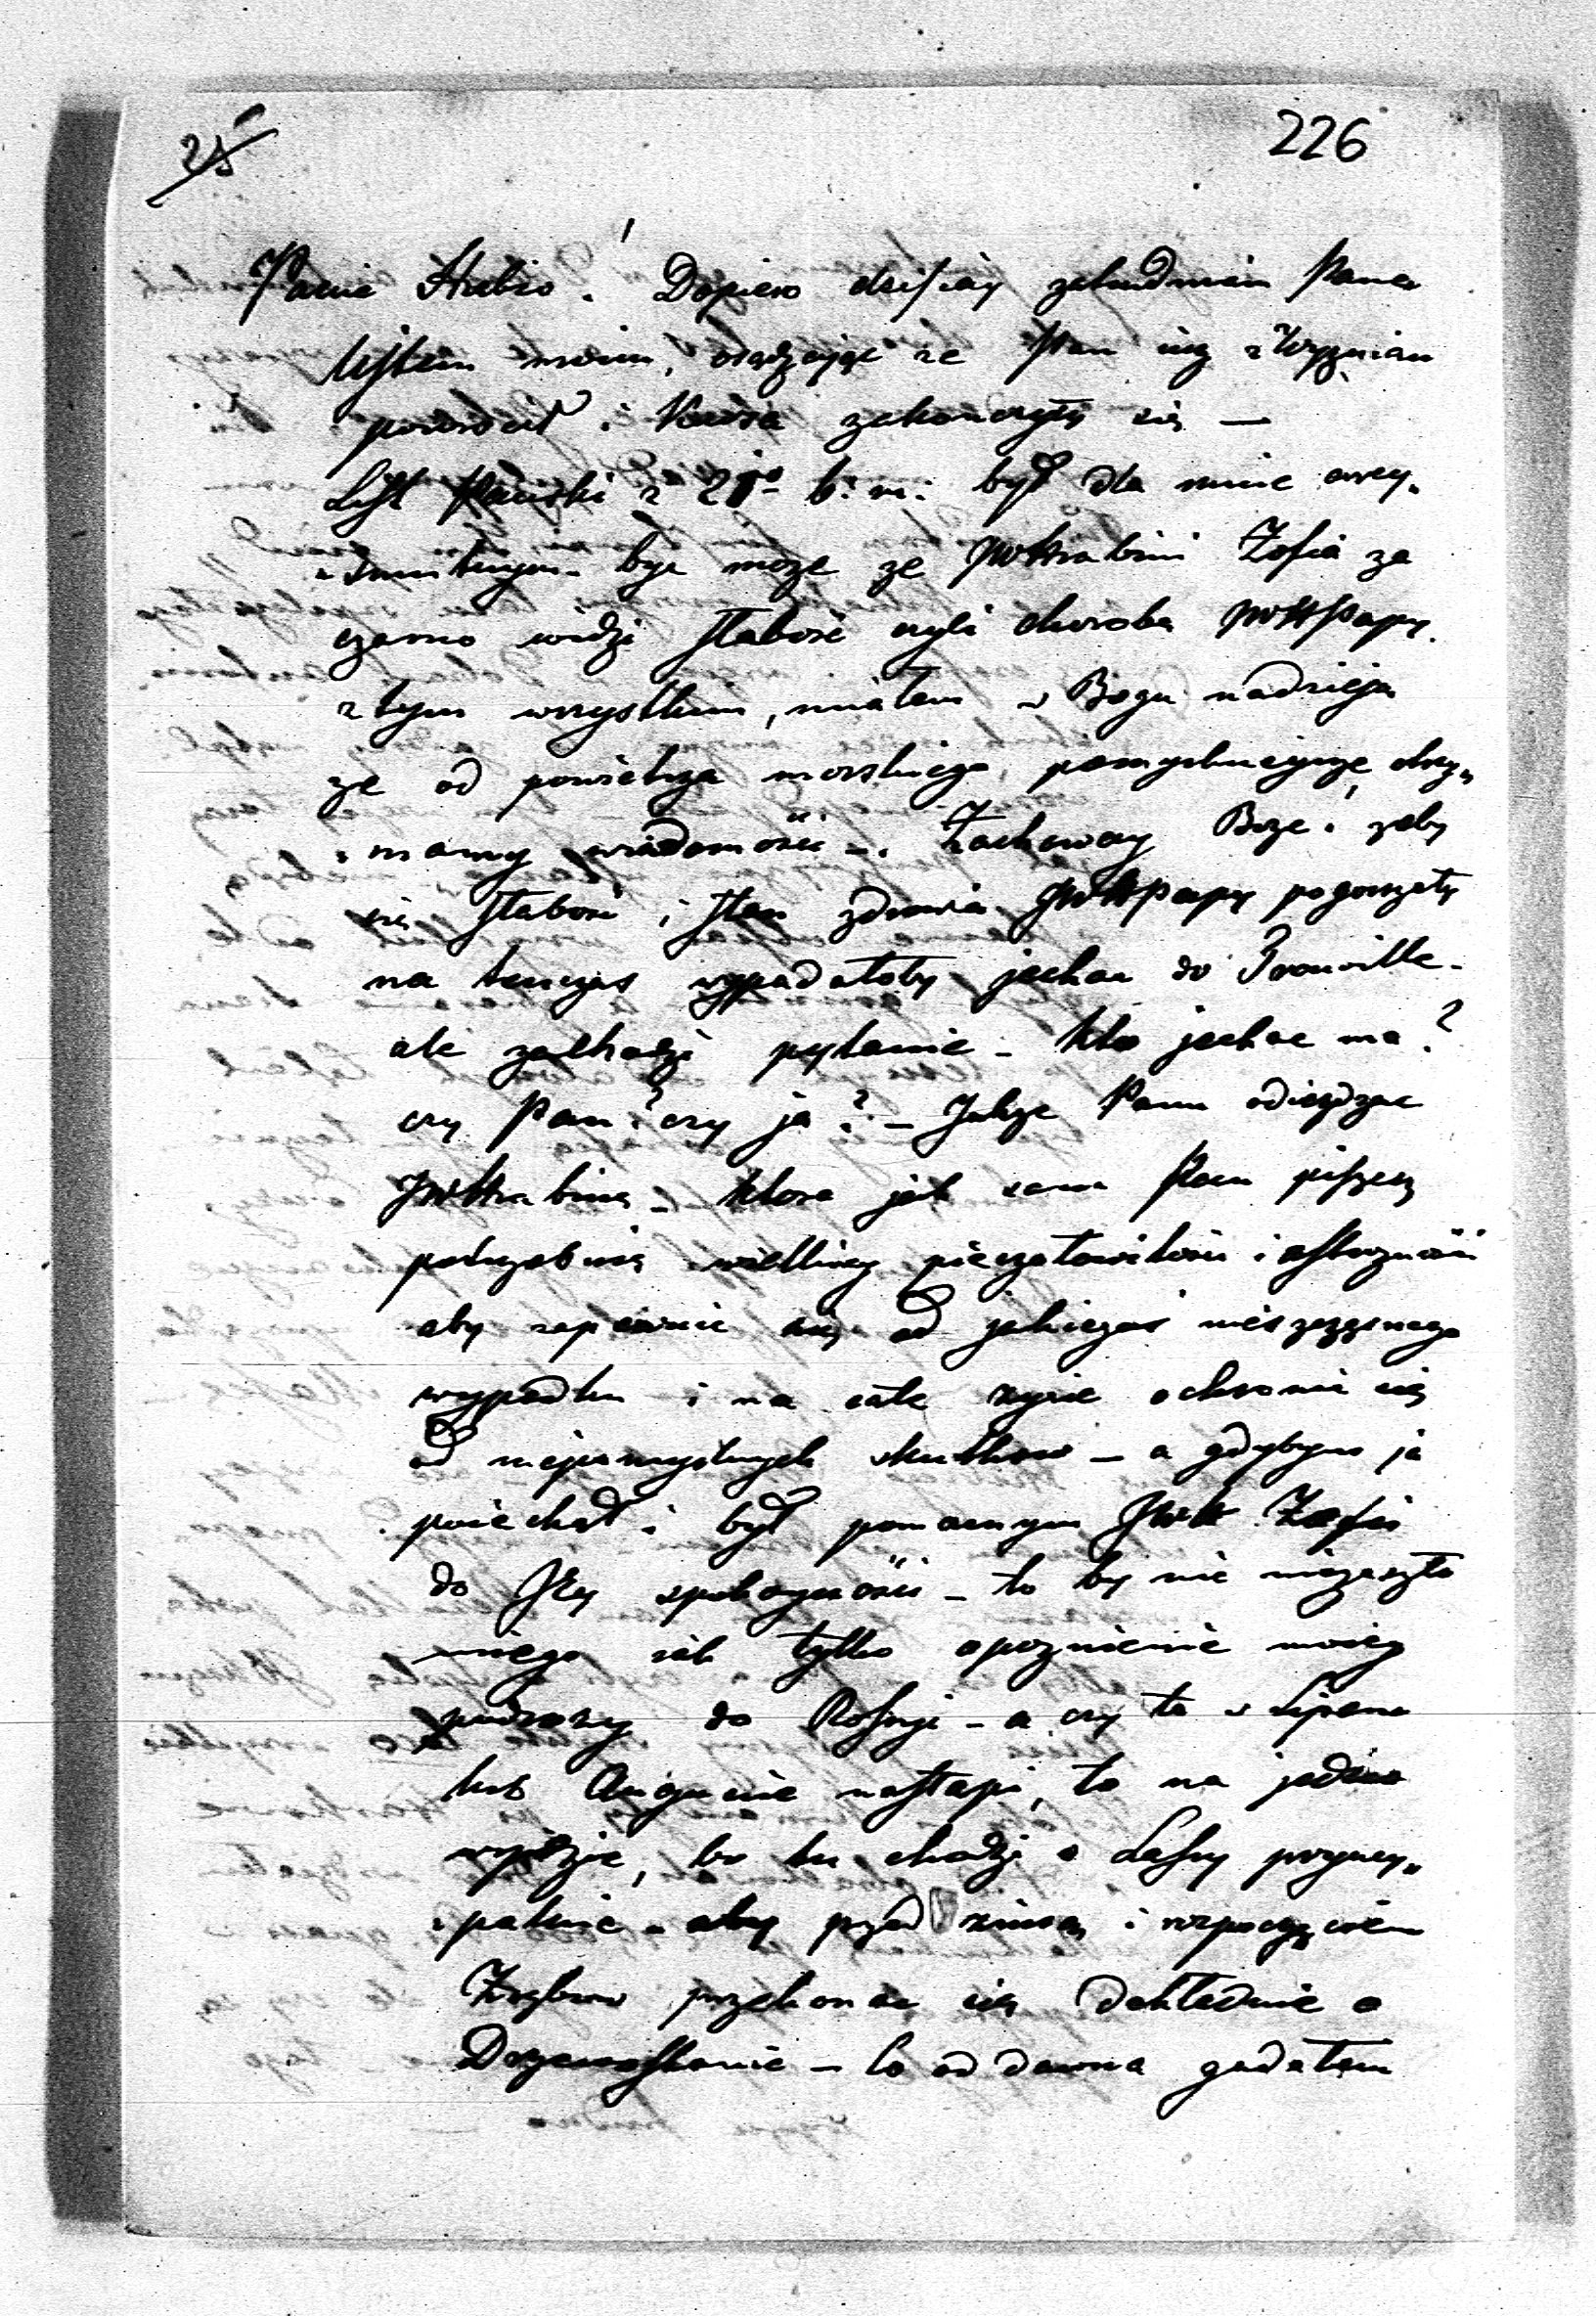 25
226
Panie Hrabio! Dopiero dzisiay zatrudniam Pana
Listem moim, osądzając ze Pan iuz z
powrocił i Kursa zakonczyły się —
List Pański z 21go b: m: był dla mnie arcy„
„smutnym – byc moze ze JWHrabini Zofia za
czarno widzi słabosc czyli choroba JWHPapy.
z tym wszystkim, miałem w Bogu nadzieja
ze od powietrza morskiego, pomyslnieysze otrzy„
„mamy wiadomości –. Zachoway Boze! zeby
się słabosc i stan zdrowia JWHPapy pogorszyły
na tenczas wypadałoby jechac do Trouville –
ale zachodzi pytanie – kto jechac ma?
czy Pan? czy ja? – Jakze Panu odiezdzac
JWHrabinę – ktora jak sam Pan piszesz
potrzebuie wielkiey pieczołowitosci i ostroznosci
aby zapewnic się od jakiegos nieszczęsnego
wypadku i na całe zycie ochronic się
od niepomyslnych skutkow – a gdybym ja
poiechał i był pomocnym JWH Zofii
do Jey spokoynosci – to by nic niezaszło
innego iak tylko opoznienie moiey
podrozy do Rossyi – a czy to w Lipcu
lub Auguscie nastąpi, to na jedno
wyidzie, bo tu chodzi o Lassy pryncy„
„palnie – aby przed zimą i rozpoczęciem
Zrębow przekonac się dokładnie o
Drzewostanie – to od dawna gadałem